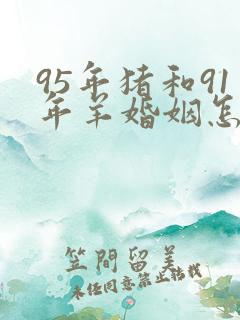 95年猪和91
年羊婚姻怎
笠間留美
未经同意禁止转载